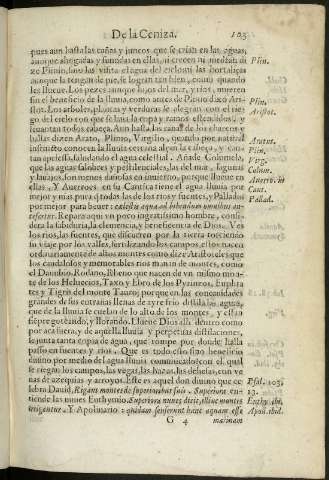 De la Ceniza. 103
pues aun hasta las cañas y juncos que se crian en las aguas,
aunque ahogadas y sumidas en ellas, ni crecen ni medran di
ze Plinio, sino las visita el agua del cielo: ni las hortalizas
aunque la tengan de pie, se logran tan bien, como quando
les llueve. Los pezes aunque hijos del mar, y rios, mueren
sin el beneficio de la lluvia, como antes de Plinio dixo Aris
tot. Los arboles, plantas y verduras se alegran con el rie-
go del cielo: con que se lava la copa y ramos estendidos, y
levantan todos cabeça. Aun hasta las ranas de los charcos y
balsas dizen Arato, Plinio, Virgilio, quando por natural
instincto conocen la lluvia cercana alçan la cabeça, y can-
tan apriessa, saludando el agua celestial. Añade Columela,
que las aguas salobres y pestilenciales, las del mar, lagunas
y
y Averroes en su Cantica tiene el agua lluvia por
mejor y mas pura que todas las de rios y fuentes, y Palladio
por mejor para bever: celestis aqua ad bibendum omnibus an-
tefertur. Repara aqui un poco ingratissimo hombre, consi-
dera la sabiduria, la clemencia, y beneficencia de Dios. Ves
los rios, las fuentes, que discurren por la tierra torciendo
su viaje por los valles, fertilizando los campos, estos nacen
ordinariamente de altos montes como dize Aristoteles que
los caudalosos y memorables rios manan de montes, como
el Danubio, Rodano, Rheno que nacen de un mismo mon-
te de los Helvecios, Taxo y Ebro de los Pyrineos, Euphra
tes y Tigris del monte Tauro; porque en las concavidades
grandes de sus entrañas llenas de ayre frio destila las aguas,
que de la lluvia se cuelan de lo alto de los montes, y estan
siempre goteando, y llorando. Llueve Dios alli dentro como
por aca fuera, y de aquella lluvia y perpetuas distilaciones,
se junta tanta copia de agua, que rompe por donde halla
passo en fuentes y rios. Que es todo esto sino beneficio
divino por medio del agua lluvia comunicado? con el qual
se riegan los campos, las vegas, las hazas, las dehesas, con ve
nas de azequias y arroyos. Este es aquel don divino que ce
lebra David, Rigans montes de superioribus suis. Superiora en-
tiende las nubes Euthymio, Superiora nunc dicit, illinc montes
irrigentur. Y Apolinario: quidam senserunt hanc aquam esse
G 4 marinam
Plin.
Plin.
Aristot.
Aratus.
Plin.
Virg.
Colum.
Averro. in
Cant.
Pallad.
Psal. 103.
13.
Euthy. ibi.
Apoll. ibid.